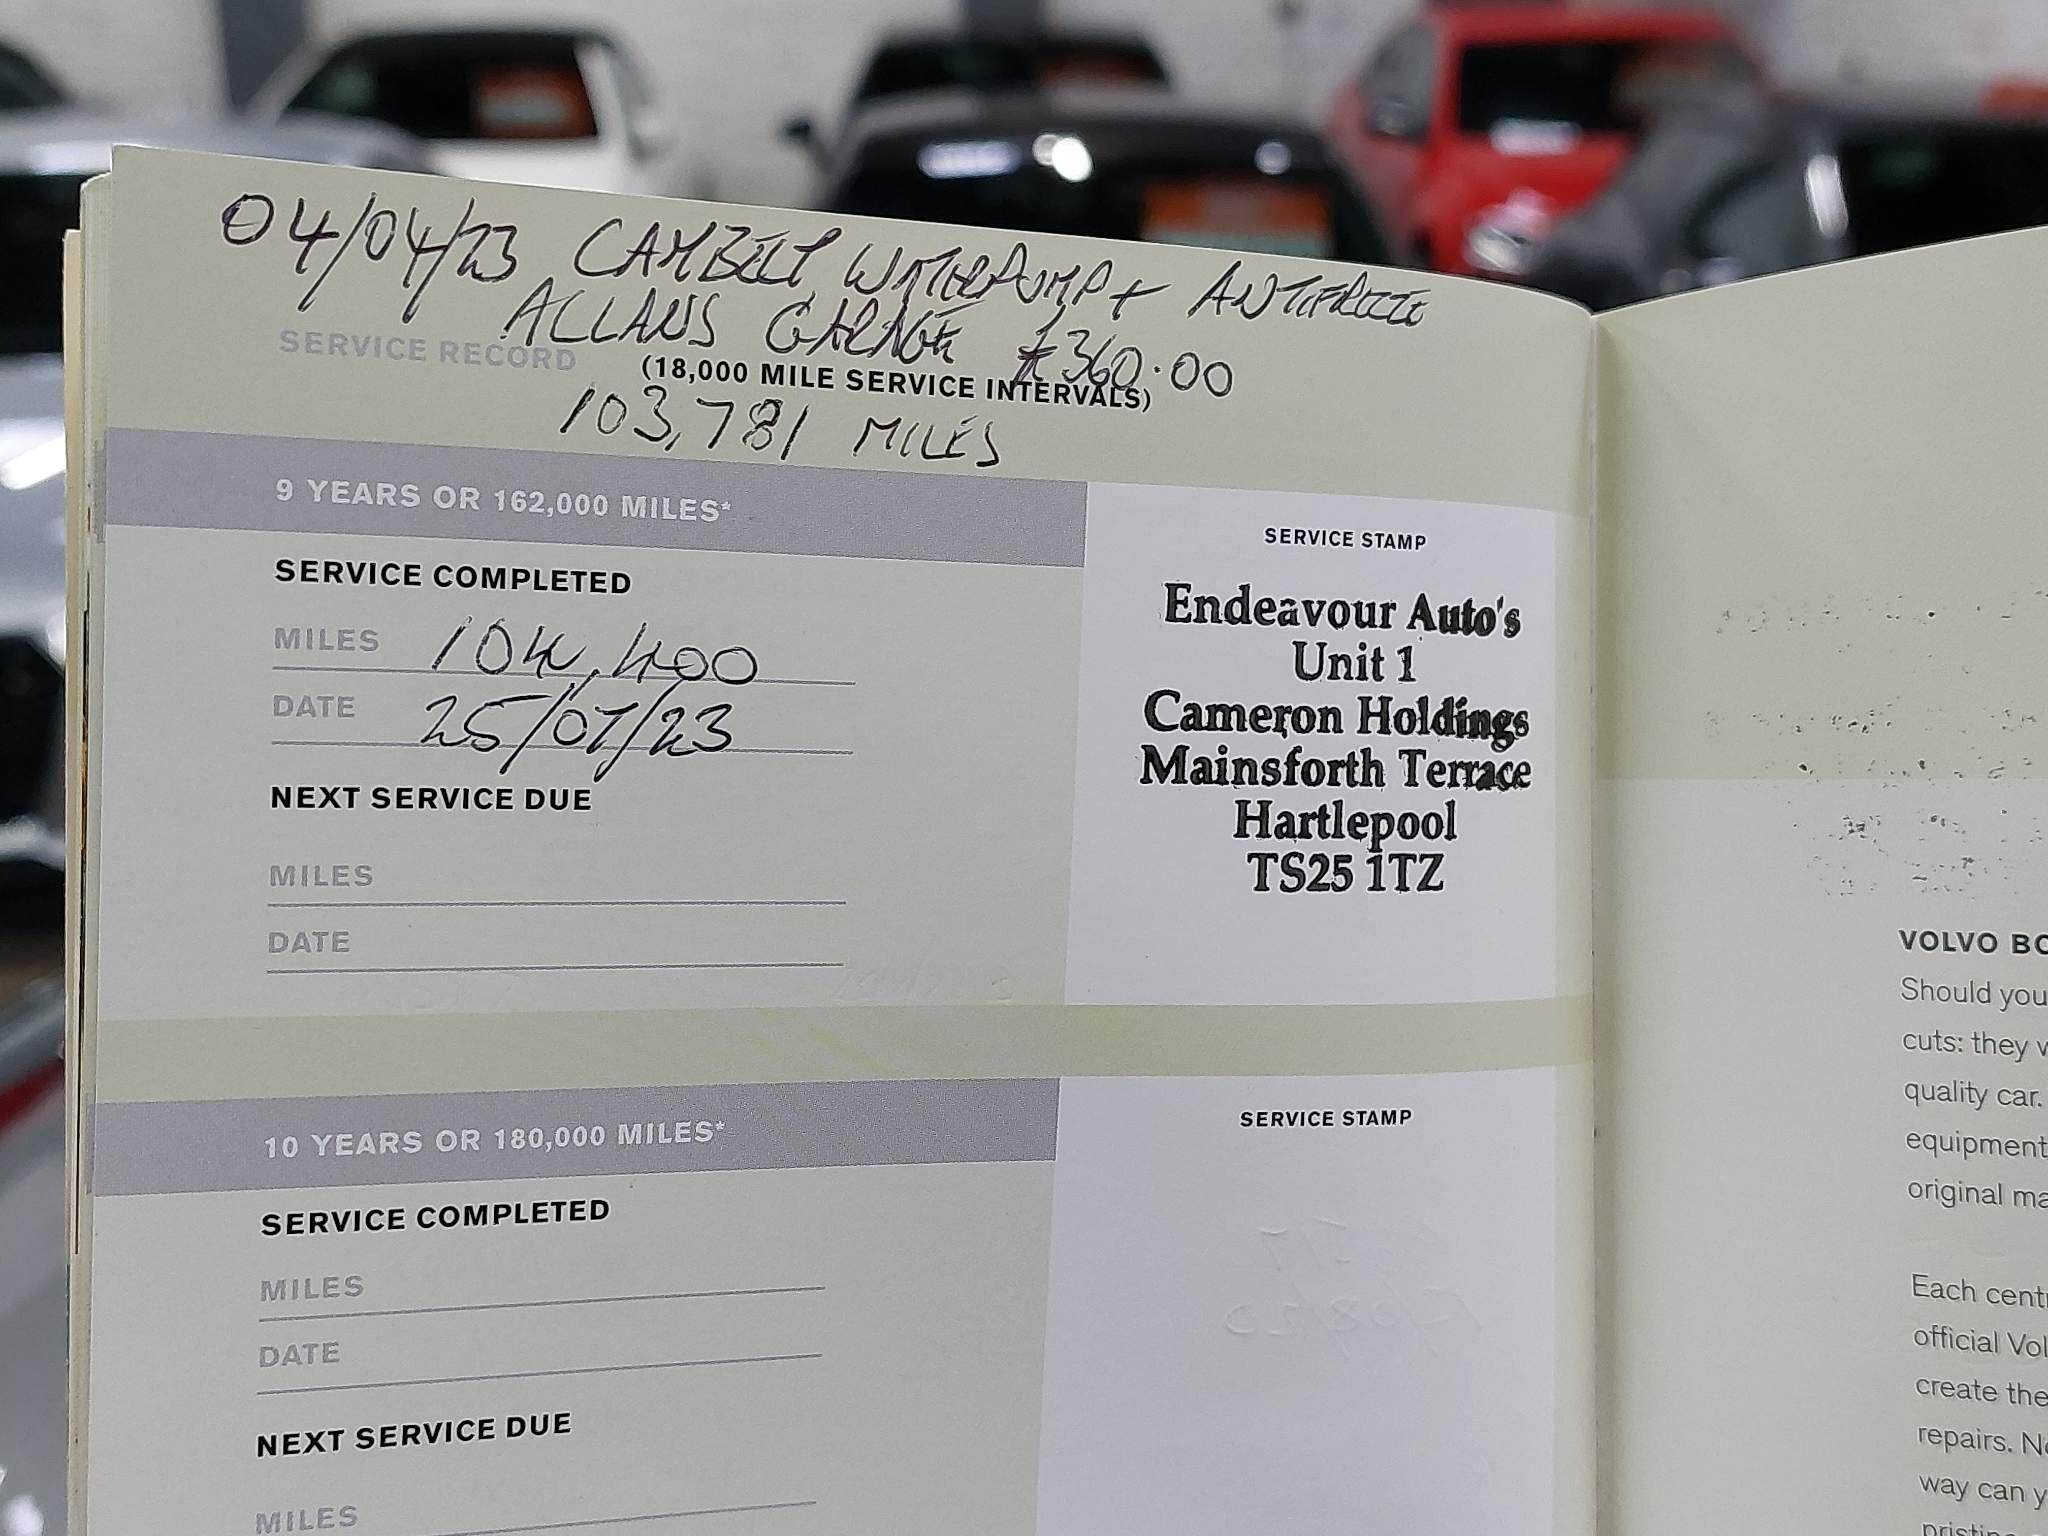 04/04/23 CAMBELT WATERPUMP + ANTIFREEZE
ALLANS GARAGE £360.00
SERVICE RECORD
(18,000 MILE SERVICE INTERVALS)
103,781 MILES
9 YEARS OR 162,000 MILES*
SERVICE COMPLETED
MILES 104,400
DATE 25/07/23
NEXT SERVICE DUE
MILES
DATE
SERVICE STAMP
Endeavour Auto's
Unit 1
Cameron Holdings
Mainsforth Terrace
Hartlepool
TS25 1TZ
10 YEARS OR 180,000 MILES*
SERVICE COMPLETED
MILES
DATE
NEXT SERVICE DUE
MILES
SERVICE STAMP
VOLVO BO
Should you
cuts: they w
quality car.
equipment
original ma
Each centr
official Vol
create the
repairs. No
way can y
pristine